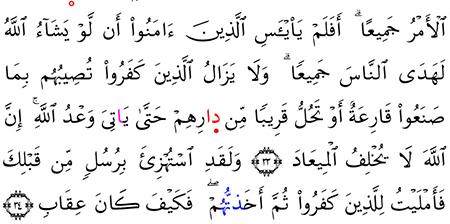 اَ۬لْأَمْرُ جَمِيعًاۗ أَفَلَمْ يَاْيْـَٔسِ اِ۬لَّذِينَ ءَامَنُواْ أَن لَّوْ يَشَآءُ اُ۬للَّهُ
لَهَدَى اَ۬لنَّاسَ جَمِيعًاۗ وَلَا يَزَالُ اُ۬لَّذِينَ كَفَرُواْ تُصِيبُهُم بِمَا
صَنَعُواْ قَارِعَةٌ أَوْ تَحُلُّ قَرِيبًا مِّن دِارِهِمْ حَتَّىٰ يَاتِىَ وَعْدُ اُ۬للَّهِۚ إِنَّ
اَ۬للَّهَ لَا يُخْلِفُ اُ۬لْمِيعَادَ ٣٣ وَلَقَدِ اِ۟سْتُهْزِئَ بِرُسُلٍ مِّن قَبْلِكَ
فَأَمْلَيْتُ لِلَّذِينَ كَفَرُواْ ثُمَّ أَخَذتُّهُمْۖ فَكَيْفَ كَانَ عِقَابِ ٣٤